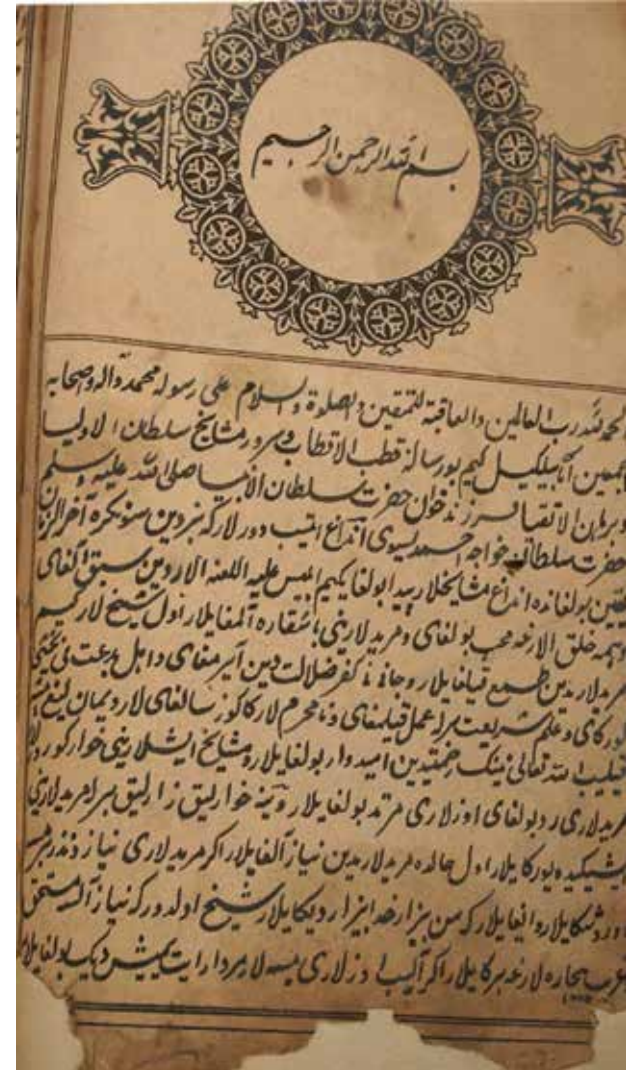 بسم الله الرحمن الرحيم
الحمد لله رب العالمين والعاقبة للمتقين والصلوة والسلام على رسوله محمد واله واصحابه
اجمعين اما بيلكيل كيم بو رساله قطب الاقطاب و سرور مشايخ سلطان الاوليا
و برهان الاتقيا فرزند خوان حضرت سلطان الانبيا صلى الله عليه وسلم
حضرت سلطان خواجه احمد يسوى انداغ ايتيب دورلار كه بيزدين سونكره آخر الزمان
يقين بولغانده انداغ مشايخلار پيدا بولغاى كيم ابليس عليه اللعنه الاردين سبق آلغاى
و همه خلق الارغه محب بولغاى و مريدلارينى باشقاره آلمغايلار اول شيخ لار كيم
مريدلاريدين طمع قيلغايلار و كفر ضلالت دين آيرمغاى و اهل بدعت نى يخشى
كوركاى و علم شريعت برله عمل قيلمغاى و نامحرم لارغا كوز سالغاى لار
قيليب الله تعالى نينك رحمتيدين اميدوار بولغايلار و مشايخ ايشلارينى خوار كوروب
مريدلارى رد بولغاى اوزلارى مرتد بولغايلار و ينه خوارليق زارليق برله مريدلارى
ايشيكيده يوركايلار اول حالده مريدلاريدين نياز آلغايلار اكر مريدلارى نياز و نذر بيرمسه
اوروشكايلار كه من بيزار خدا بيزار ديكايلار شيخ اولدور كه نياز آلسه مستحق
غريب بيچاره لارغه بيركايلار اكر آليب اوزلارى يسه لار مردار ايت ييميش ديك بولغايلار